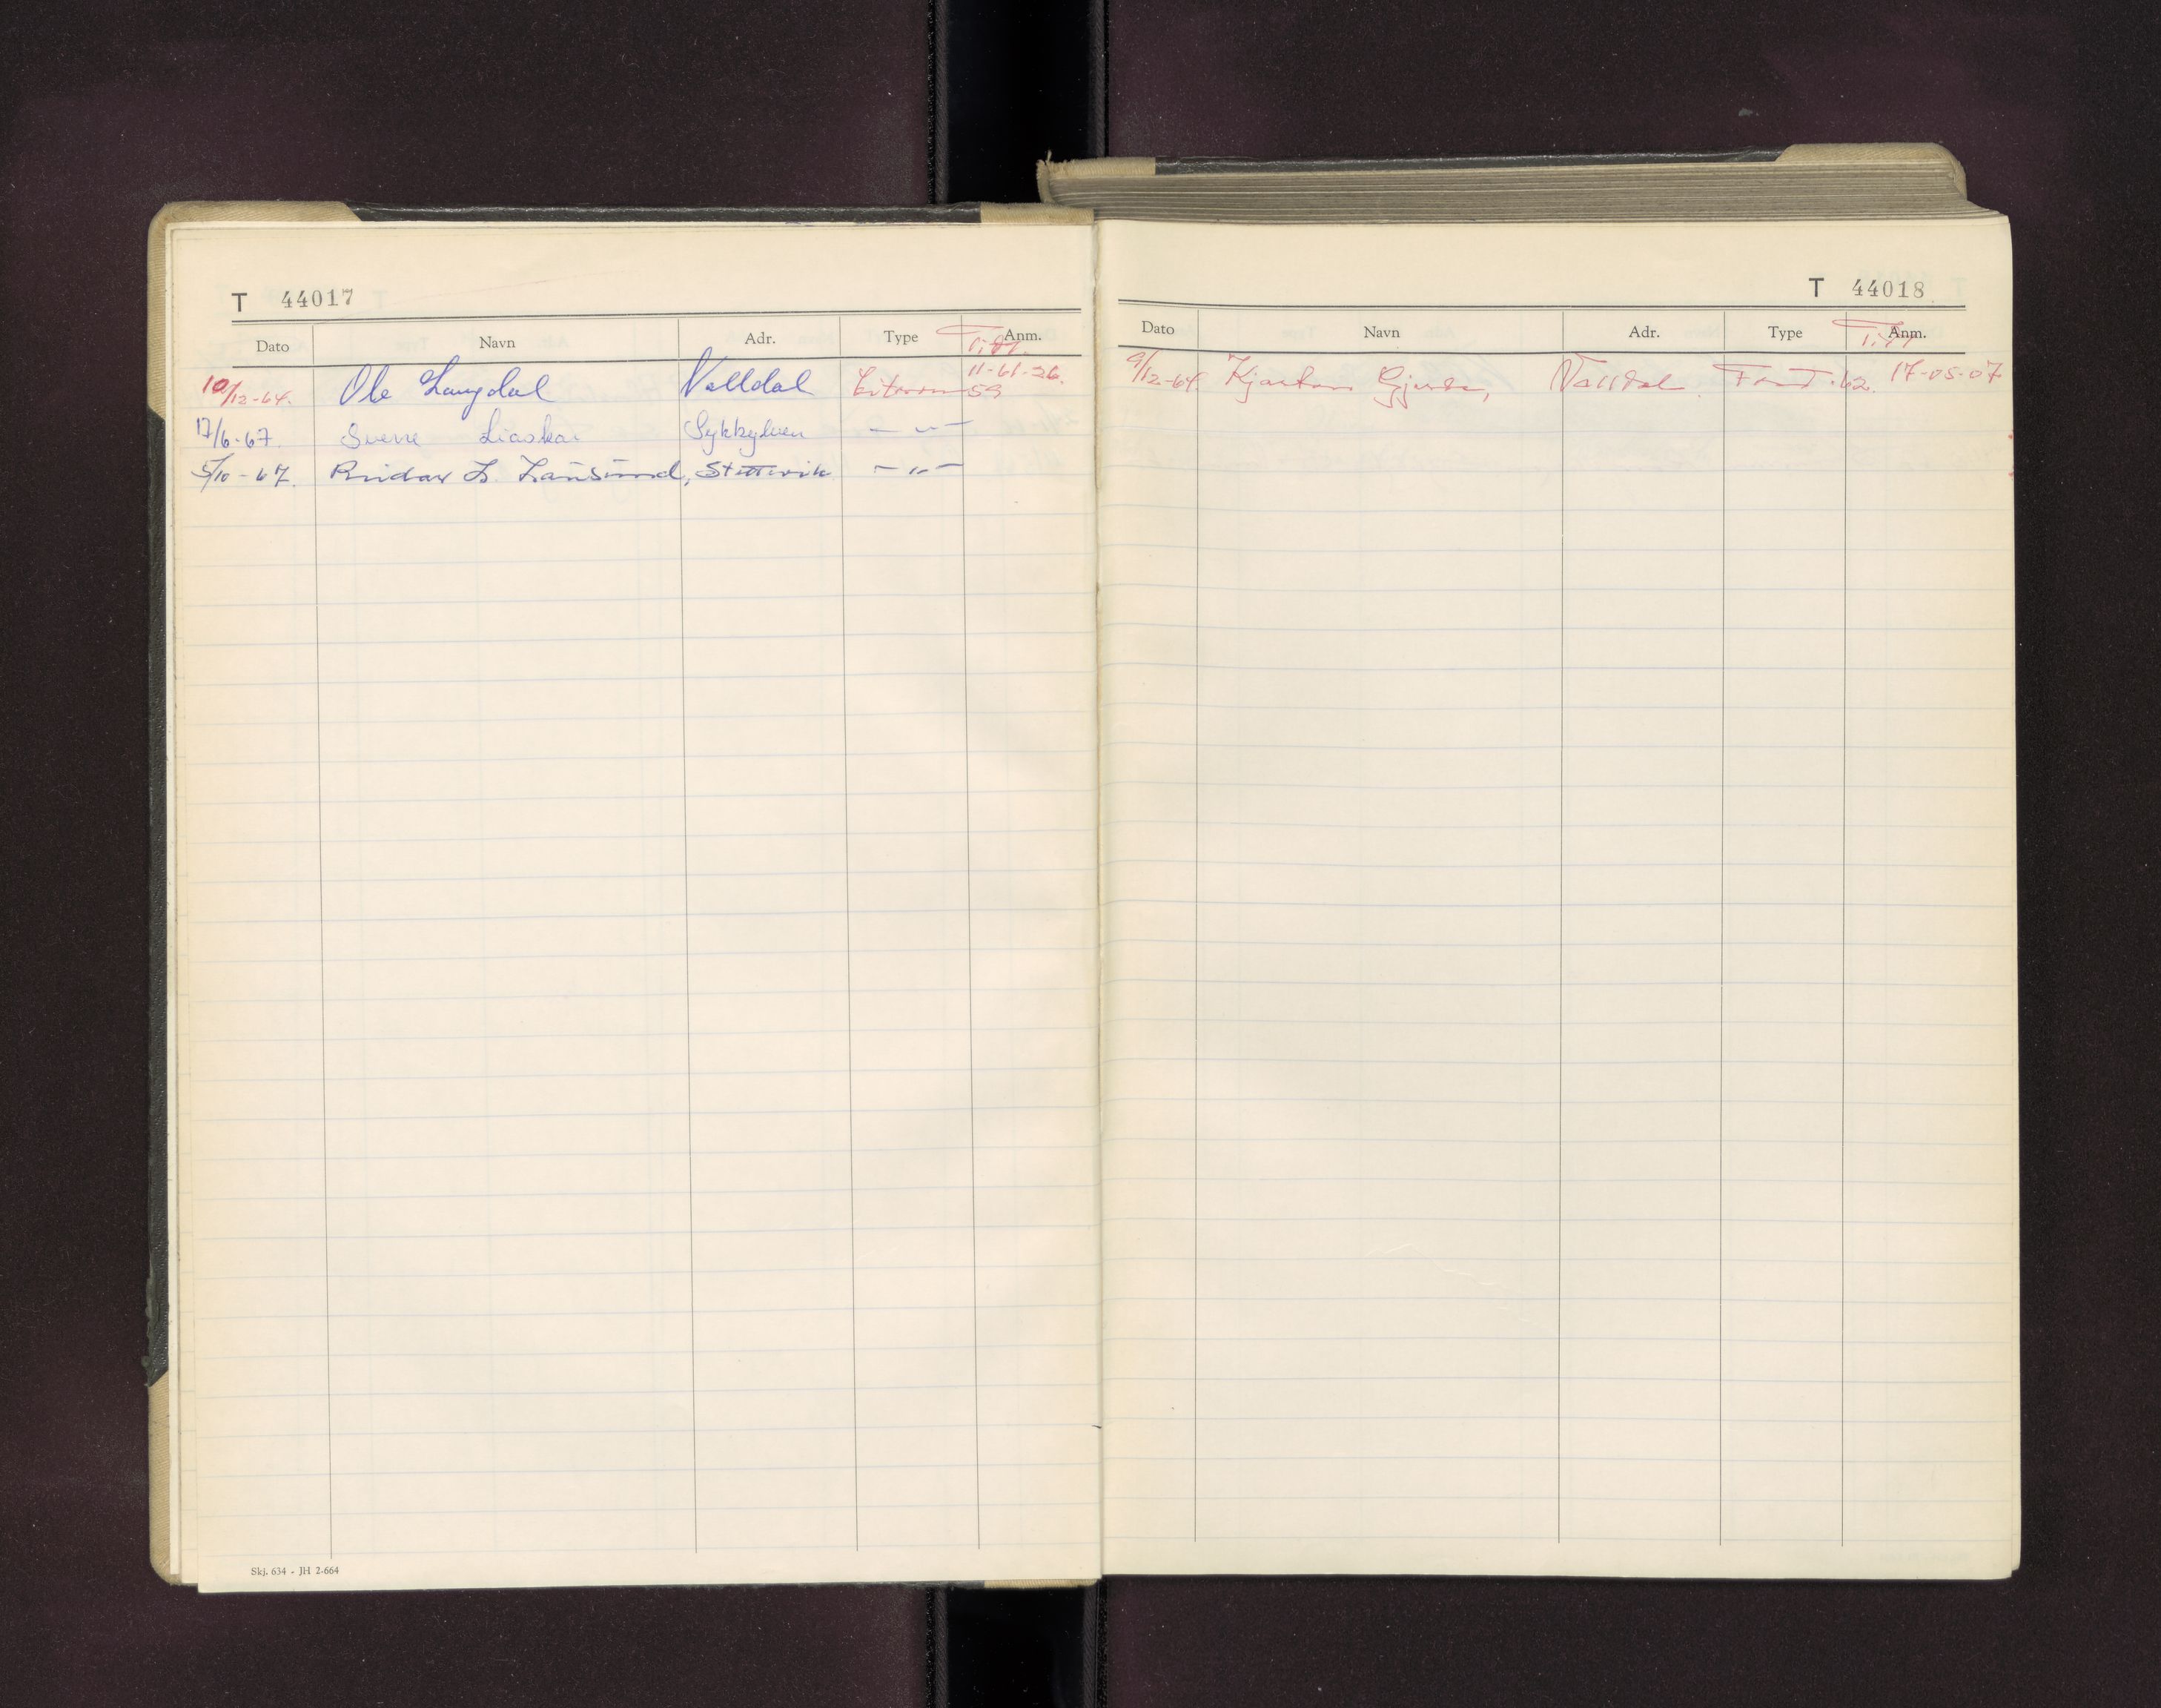 T 44017
Dato Navn Adr. Type Anm.
11-61-26.
10/12-64. Ole Langdal Valldal Citroen 59
17/6-67. Sverre Liaskar Sykkylven — " —
5/10-67. Reidar L. Stettevik — " —
Skj. 634 - JH 2-664
T 44018
Dato Navn Adr. Type Anm.
9/12-64 Kjartan Gjerde, Valldal. Ford. 62. 17-05-07